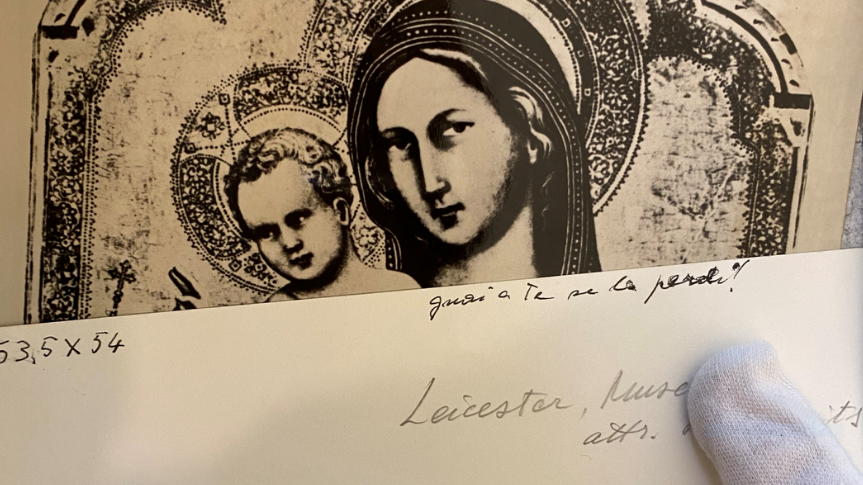 guai a te se la perdi!
53,5 X 54
Leicester, Muse
attr.